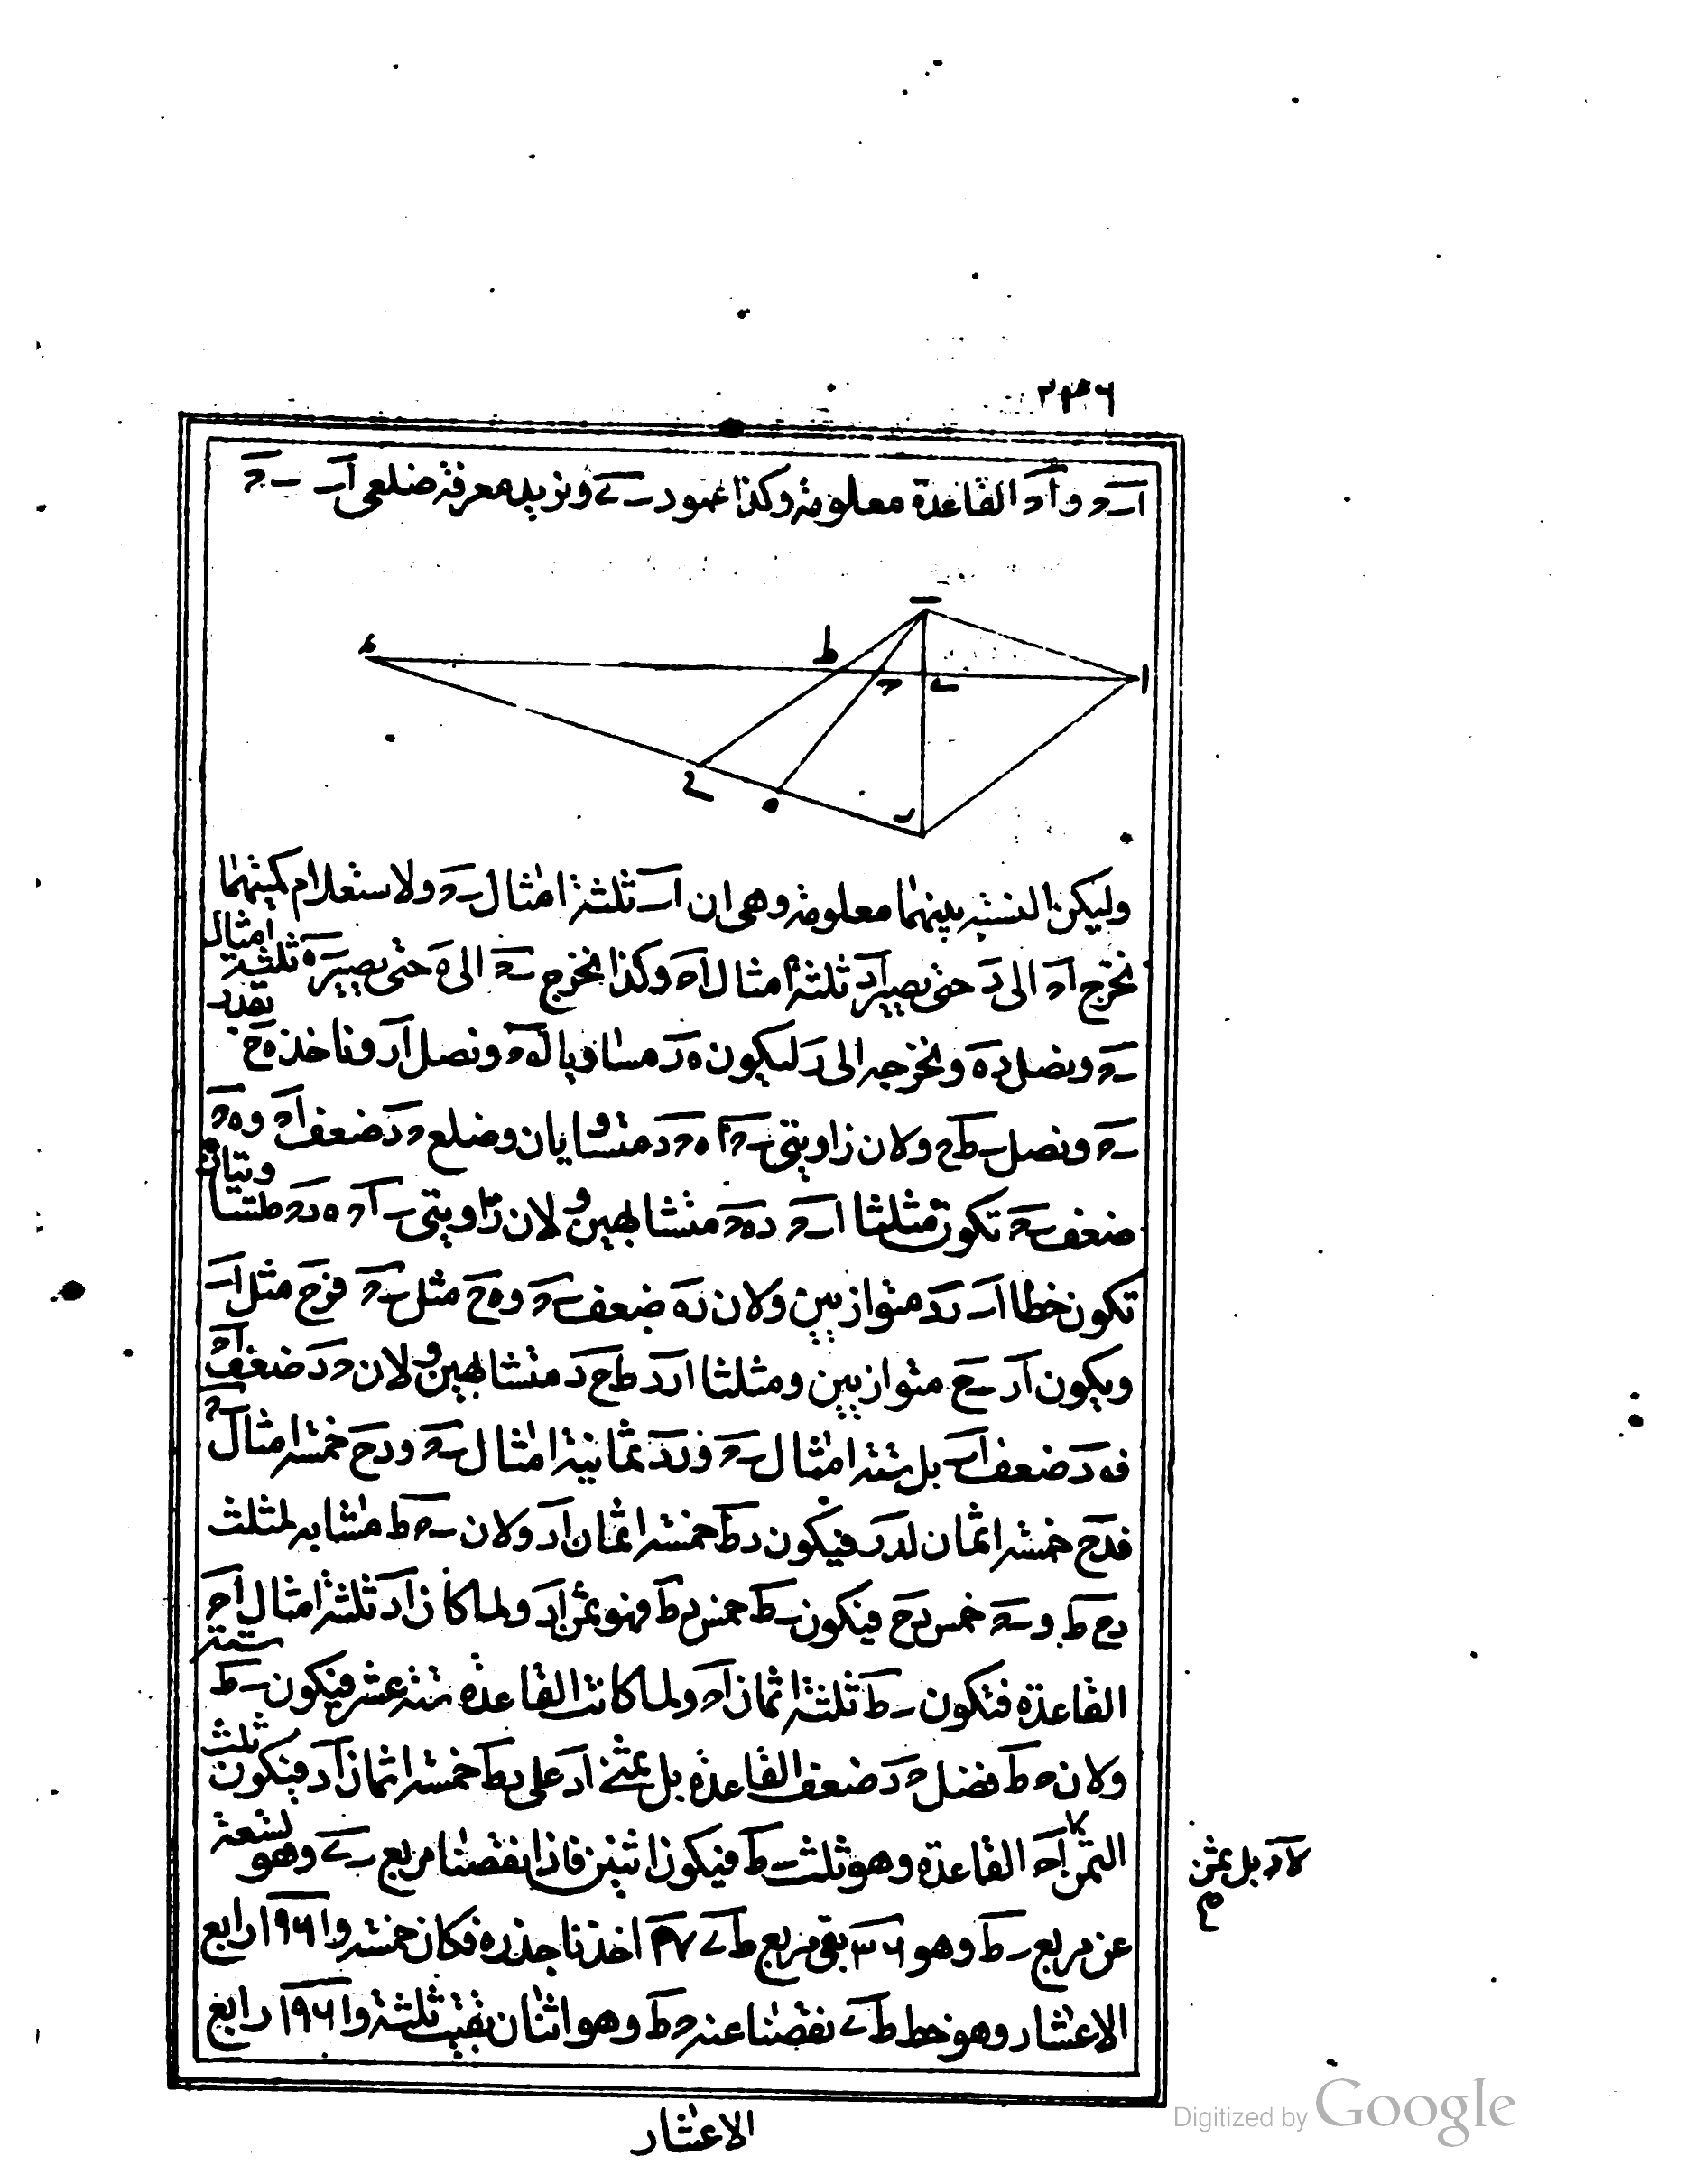 ٢٣٦
ا ب ح و ا ح القاعدة معلومة وكذا عمود ب ے ونريد معرفة ضلعى ا ب ب ح
ب
ء
ط
ح
ے
ا
ح
ه
ر
وليكن النسبة بينهما معلومة وهى ان ا ب ثلثة امثال ب ح ولاستعلام كميتهما
نخرج ا ح الى د حتى يصير ا د ثلثة امثال ا ح وكذا نخرج ب ح الى ه حتى يصير ح ه ثلثة امثال
ب ح ونصل د ه ونخرجه الى ر ليكون ه ر مساويا ل ه ح ونصل ا ر وناخذ ه ح بقدر
ب ح ونصل ب ط ح ولان زاويتى ب ح ا ه ح د متساويان وضلع ح د ضعف ا ح و ه ح
ضعف ب ح تكون مثلثا ا ب ح د ه ح متشابهين ولان زاويتى ب ا ح ه د ح متساويتان
تكون خطا ا ب ر د متوازيين ولان ر ه ضعف ب ح و ه ح مثل ب ح فر ح مثل ا ب
ويكون ا ر ب ح متوازيين ومثلثا ا ر د ط ح د متشابهين ولان ح د ضعف ا ح
فه د ضعف ا ب بل ستة امثال ب ح فر د ثمانية امثال ب ح و د ح خمسة امثال ب ح
فد ح خمسة اثمان لد ر فيكون د ط خمسة اثمان ا د ولان ب ح ط مشابه لمثلث
د ح ط و ب ح خمس د ح فيكون ب ط خمس د ط فهو ثمن ا د ولما كان ا د ثلثة امثال ا ح
القاعدة فتكون ب ط ثلثة اثمان ا ح ولما كانت القاعدة ستة عشر فيكون ب ط ستة
ولان ح ط فضل ح د ضعف القاعدة بل ثمنى ا د على د ط خمسة اثمان ا د فيكون ثلث
الثمن ا ح القاعدة وهو ثلث ب ط فيكون اثنين فاذا نقصنا مربع ب ے وهو تسعة
لا د بل ثمن
عن مربع ب ط وهو ٣٦ بقى مربع ط ے ٢٧ اخذنا جذره فكان خمسة و ١٩٦١ رابع
الاعشار وهو خط ط ے نقصنا عنه ح ط وهو اثنان بقيت ثلثة و ١٩٦١ رابع
الاعشار
Digitized by Google